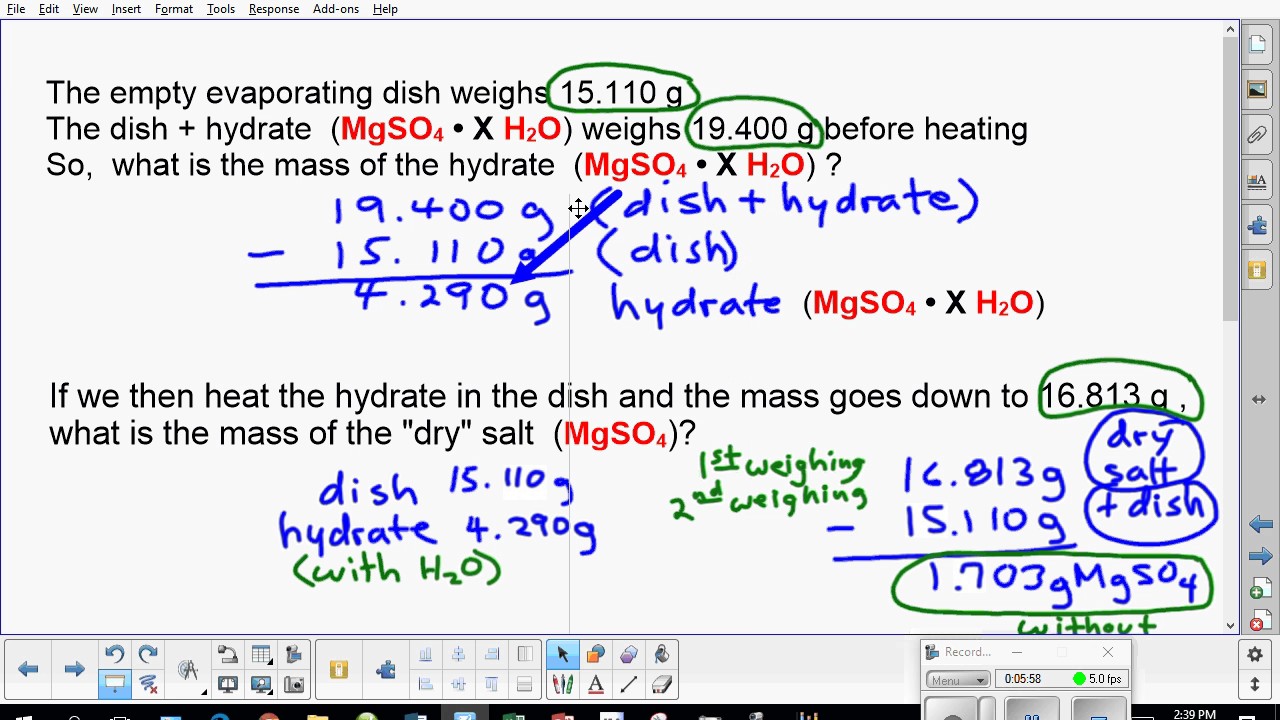 File Edit View Insert Format Tools Response Add-ons Help
The empty evaporating dish weighs 15.110 g
The dish + hydrate (MgSO₄ • X H₂O) weighs 19.400 g before heating
So, what is the mass of the hydrate (MgSO₄ • X H₂O) ?
19.400 g (dish + hydrate)
− 15.110 g (dish)
4.290 g hydrate (MgSO₄ • X H₂O)
If we then heat the hydrate in the dish and the mass goes down to 16.813 g ,
what is the mass of the "dry" salt (MgSO₄)?
dish 15.110 g
hydrate 4.290g
(with H₂O)
1st weighing 16.813g dry salt
2nd weighing − 15.110g + dish
1.703g MgSO₄
without
Record...
Menu 0:05:58 5.0 fps
2:39 PM